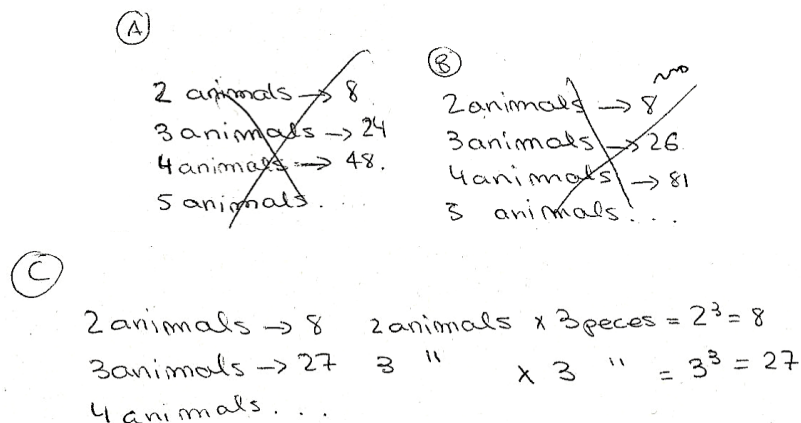 A
2 animals → 8
3 animals → 24
4 animals → 48.
5 animals...
B
no
2 animals → 8
3 animals → 26
4 animals → 81
5 animals...
C
2 animals → 8 2 animals x 3 peces = 2³ = 8
3 animals → 27 3 " x 3 " = 3³ = 27
4 animals...